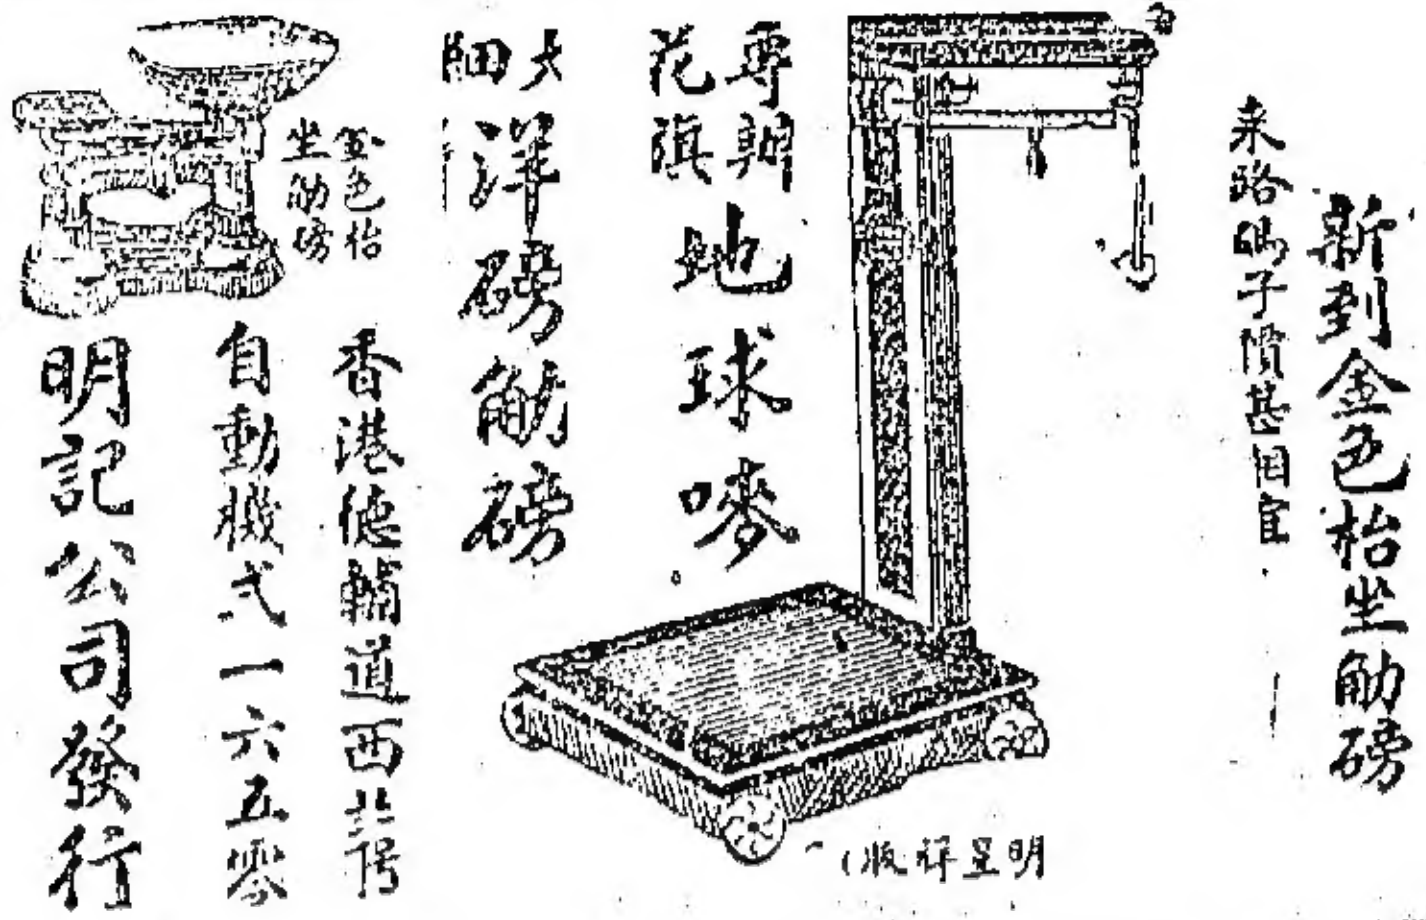 新到金色枱坐觔磅
来路碼子價甚相宜
專辦
花旗
地球嘜
大
細
洋磅觔磅
金色枱
坐觔磅
香港德輔道西號
自動機弍一六五零
明記公司發行
明星鋅版